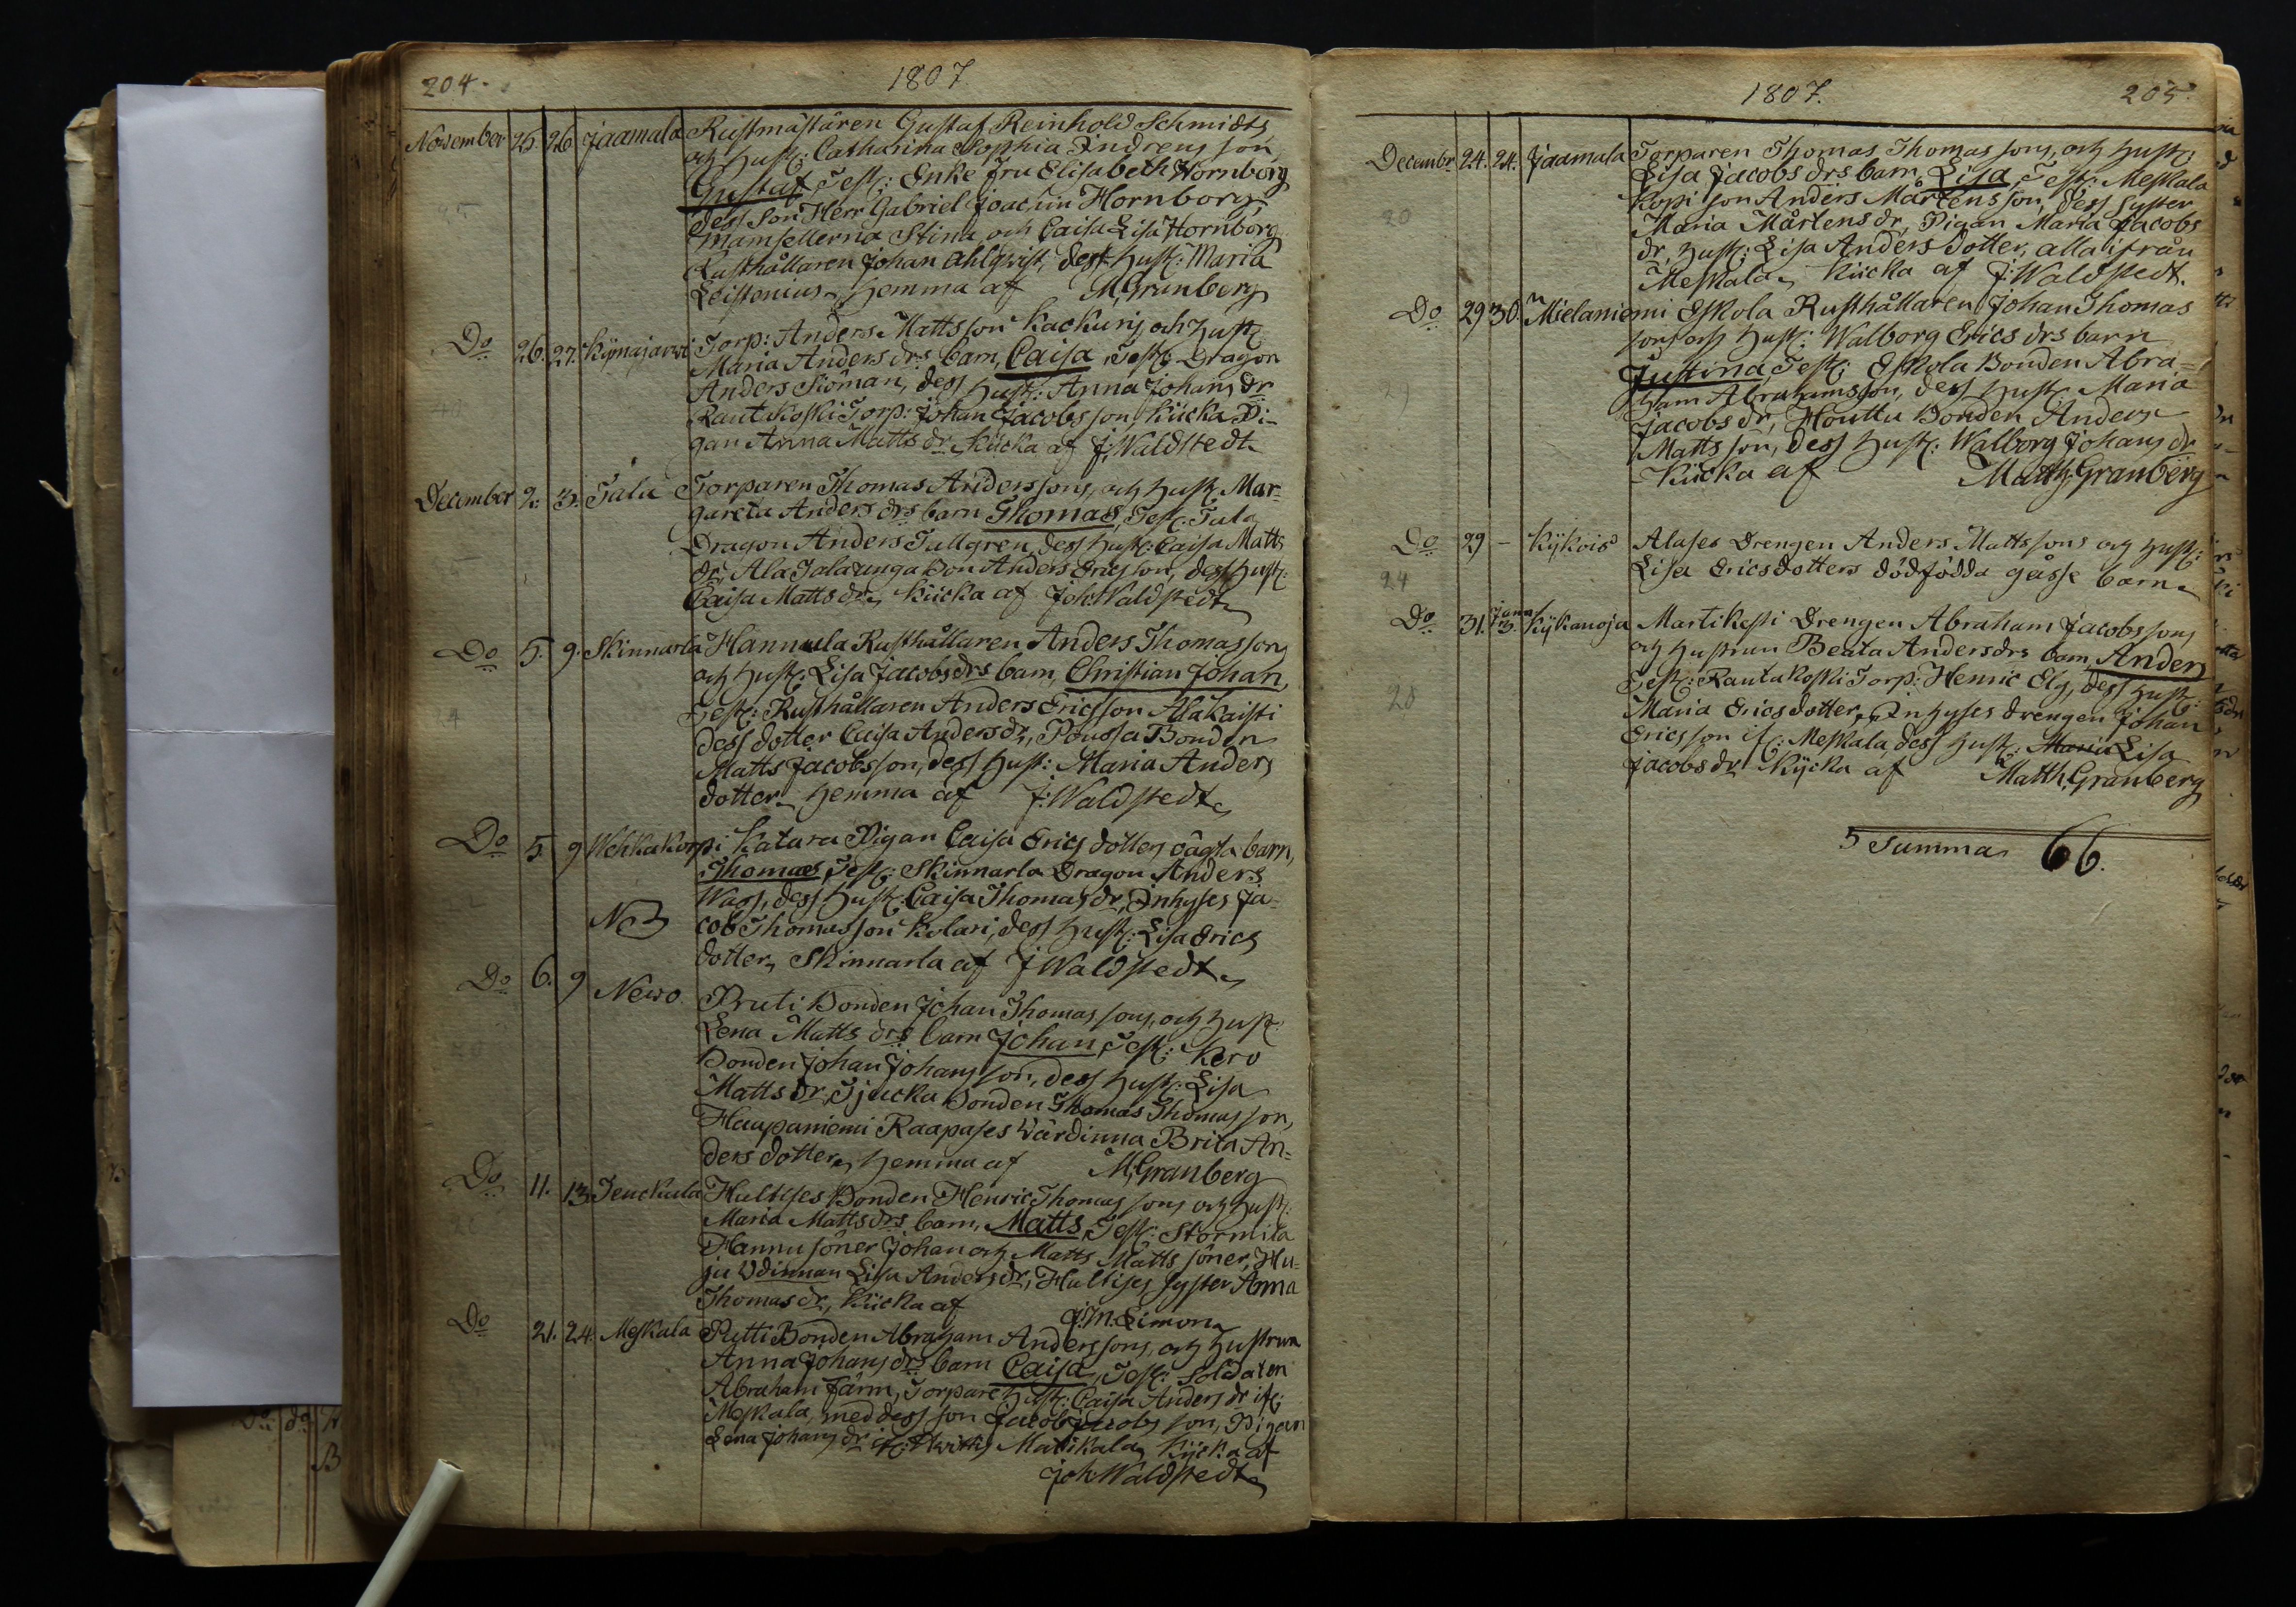 204.
1807
November 25. 26. Jaamala Rustmästaren Gustaf Reinhold Schmidts
och Hust: Catharina Sophia Indrens son,
Gustaf, Test: Enke Fru Elisabeth Hornborg
dess son Herr Gabriel Joachim Hornborg,
Mamsellerna Stina och Caisa Lisa Hornborg
Rusthållaren Johan Ahlqvist, dess Hust: Maria
Leistenius, hemma af M. Granberg
Do 26. 27. Kijmajärwi Torp: Anders Mattsson Kackuris och Hust:
Maria Anders drs barn, Caisa, Test: Dragon
Anders Siöman, dess Hust: Anna Johans dr
Rautakoski Torp: Johan Jacobsson Kiicka, Pi-
gan Anna Matts dr Kiicka af J: Waldstedt
December 2. 3. Tala Torparen Thomas Anderssons, och Hust: Mar-
gareta Anders drs barn Thomas, Test: Tala
Dragon Anders Tullgren, dess Hust: Caisa Matts
dr, Ala Tala unga Bon Anders Ericsson, dess Hust:
Caisa Matts dr, Kiicka af Joh: Waldstedt
Do 5. 9. Skinnarla Hannula Rusthållaren Anders Thomassons
och Hust: Lisa Jacobs drs barn, Christian Johan,
Test: Rusthållaren Anders Ericsson Alakaisti
dess dotter Caisa Anders dr, Poussa Bonden
Matts Jacobsson, dess Hust: Maria Anders
dotter, hemma af J: Waldstedt
Do 5. 9 Wehkakorpi Katara Pigan Caisa Erics dotters oägta barn,
Thomas, Test: Skinnarla Dragon Anders
Wass, dess Hust: Caisa Thomas dr, Inhyses Ja-
NB cob Thomasson Kolari, dess Hust: Lisa Erics
dotter, Skinnarla af J Waldstedt
Do 6. 9 Newo Pruti Bonden Johan Thomassons, och Hust:
Lena Matts drs barn Johan, Test: Kero
Bonden Johan Johansson, dess Hust: Lisa
Matts dr, Sjucka Bonden Thomas Thomasson,
Haapaniemi Raapases Wärdinna Brita An-
ders dotter, hemma af M. Granberg
Do 11. 13. Jeuckala Hultises Bonden Henric Thomassons och Hust:
Maria Matts drs barn, Matts, Test: Stormila
Hannu söner Johan och Matts Matts söner, Hu-
ju Wdinnan Lisa Anders dr, Hultises syster Anna
Thomas dr, Kiicka af J. M. Limon
Do 21. 24. Meskala Pytti Bonden Abraham Anderssons, och Hustrun
Anna Johans drs barn Caisa, Test: Soldaten
Abraham Färm, Torpare Hust: Caisa Anders dr if:
Meskala, med dess son Jacob Jacobs son, Pigan
Lena Johans dr if: Matikala, Kijcka af
Joh: Waldstedt
1807.
205.
Decembr 24. 24. Jaamala Torparen Thomas Thomassons, och Hust:
Lisa Jacobs drs barn, Lisa, Test: Meskala
Kopi son Anders Mårtensson, dess syster
Maria Mårtens dr, Pigan Maria Jacobs
dr, Hust: Lisa Anders dotter, alla ifrån
Meskala, Kiicka af J: Waldstedt.
Do 29 30. Mielaniemi Eskola Rusthållaren Johan Thomas
sons och Hust: Walborg Erics drs barn
Justina, Test: Eskola Bonden Abra-
ham Abrahamsson, dess Hust: Maria
Jacobs dr, Houttu Bonden Anders
Mattsson, dess Hust: Walborg Johans dr
Kiicka af Matth. Granberg
Do 29 - Kijkois Alases Drengen Anders Mattssons och Hust:
Lisa Ericsdotters dödfödda gåsse barn
Do 31. Janr 3. Kijkanoja Martikesti Drengen Abraham Jacobssons
och Hustrun Beata Anders drs barn, Anders
Test: Rautakoski Torp: Henric Elg, dess Hust:
Maria Ericsdotter, Inhyses drengen Johan
Ericsson if: Meskala, dess Hust: Maria Lisa
Jacobs dr Kijcka af Matth. Granberg
Summa 66.